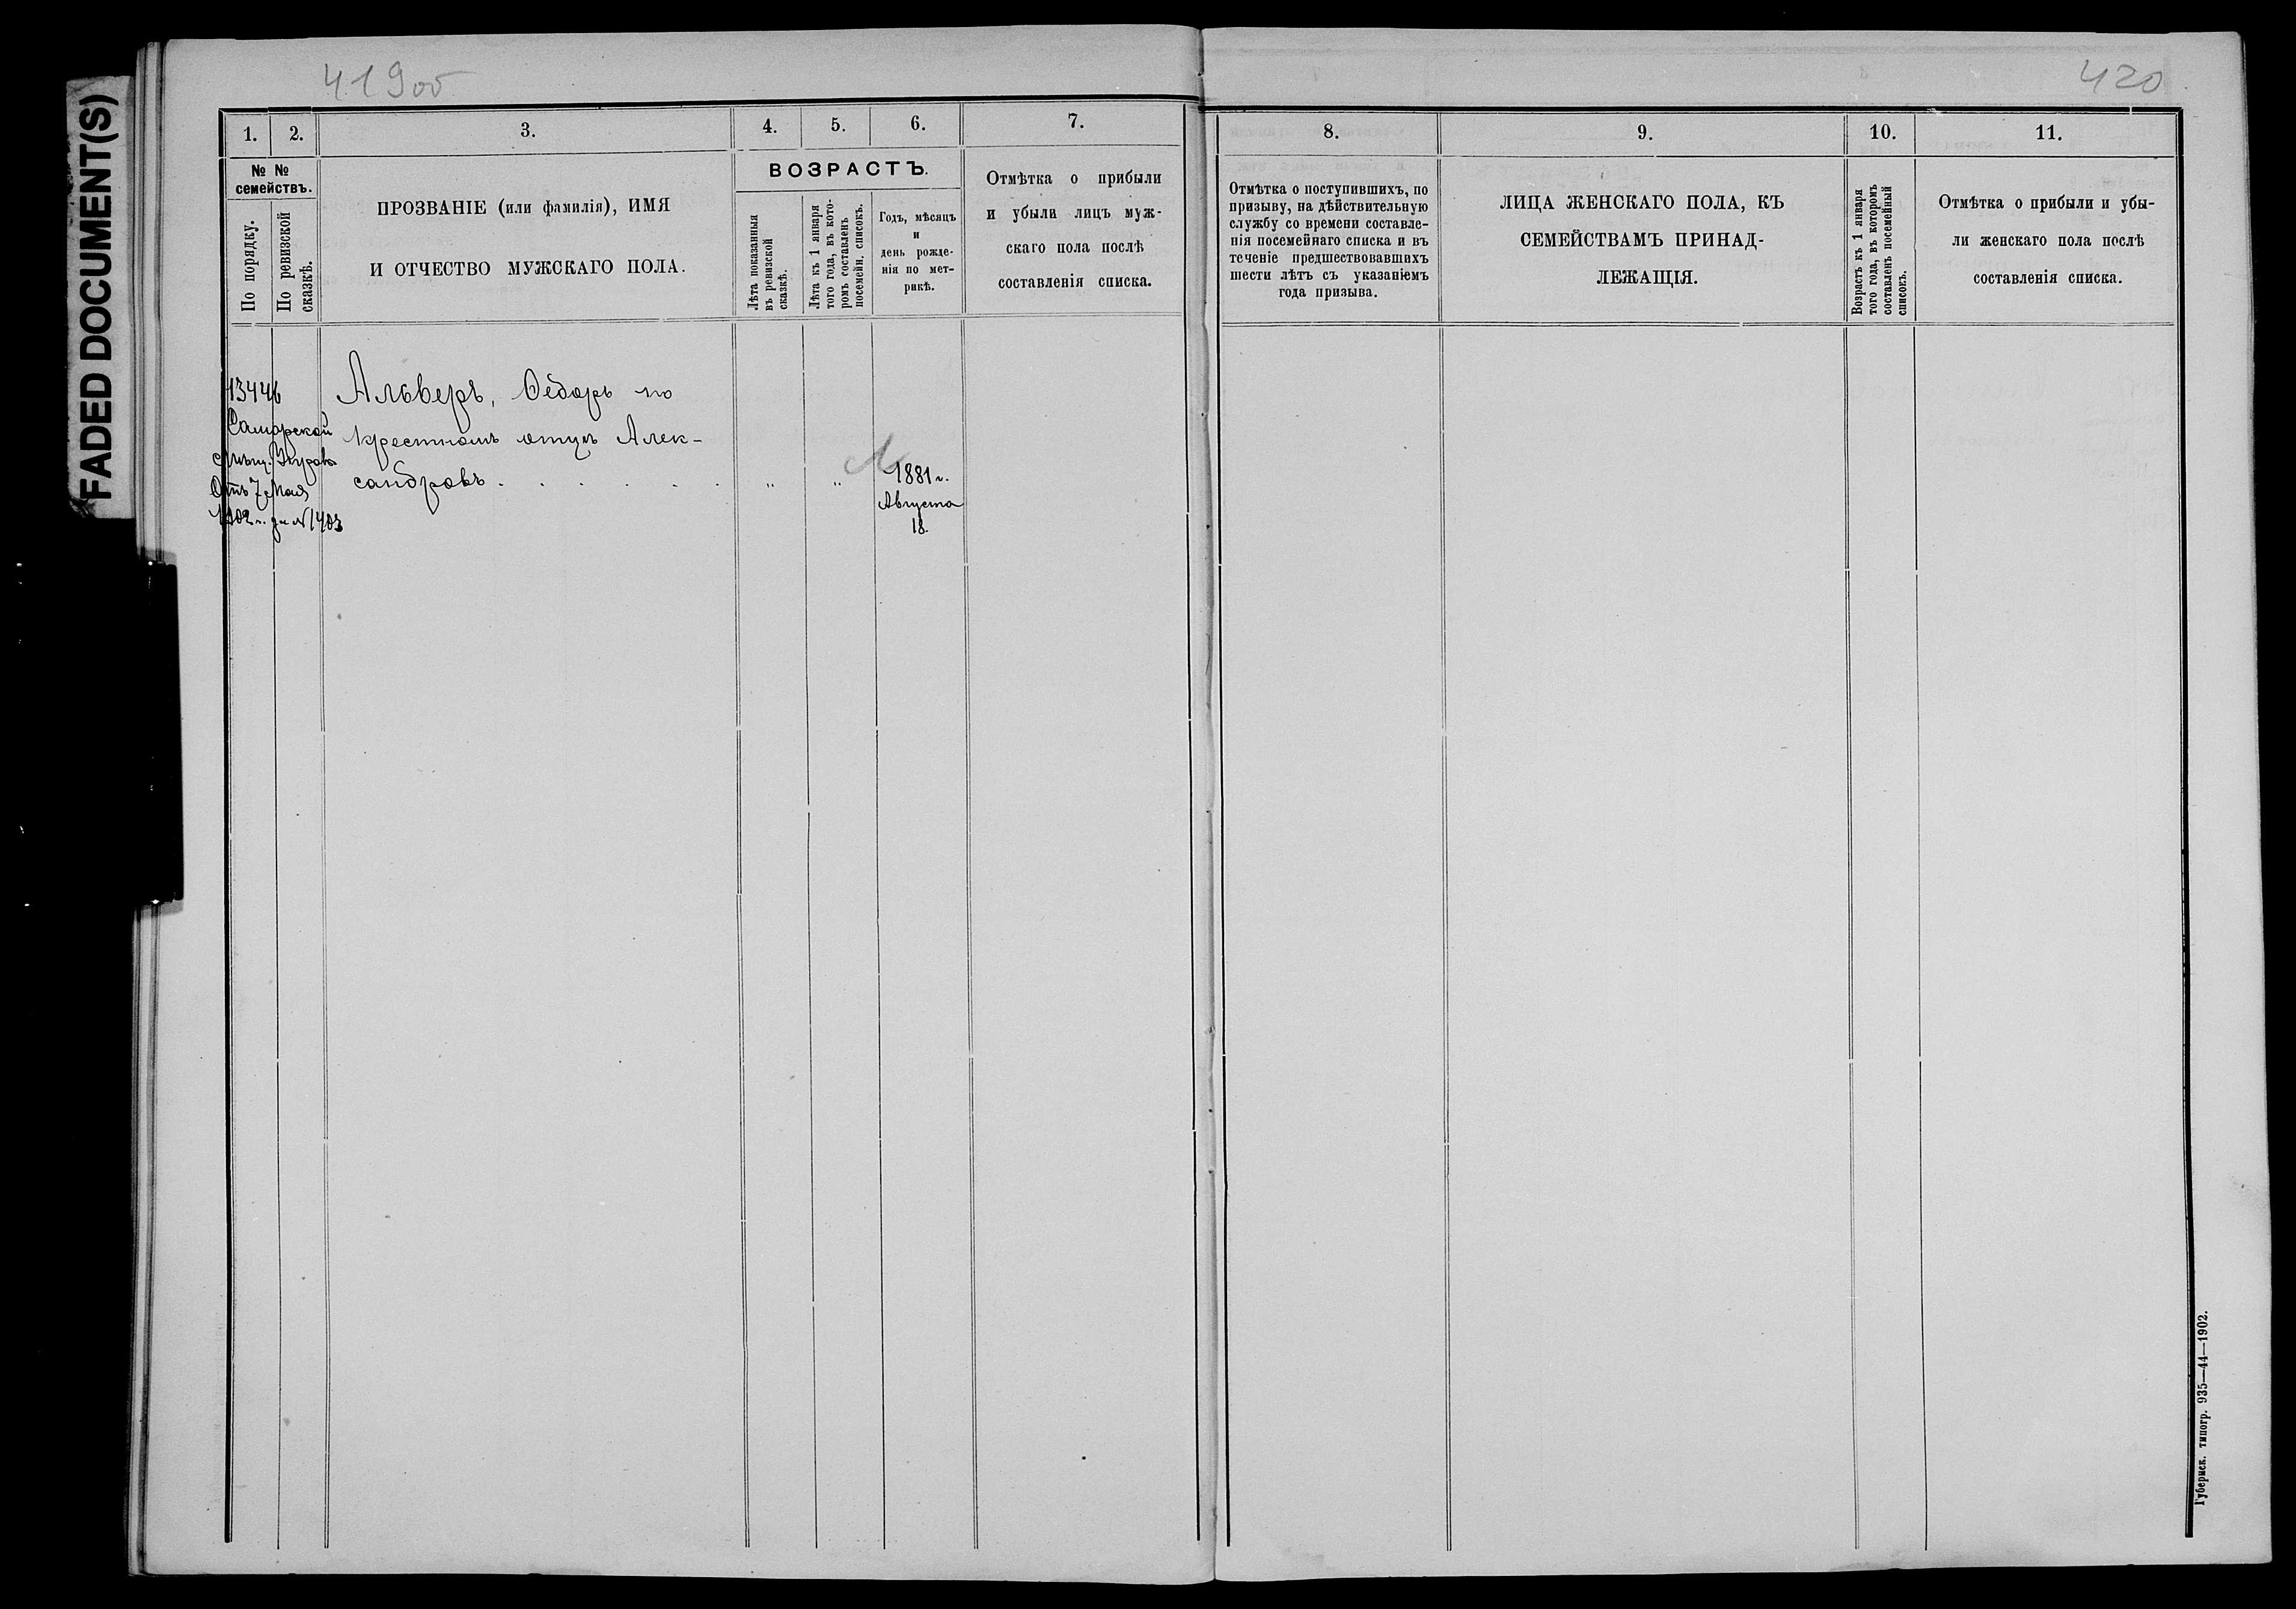 FADED DOCUMENT(S)
419об
420
1.
2.
3.
4.
5.
6.
7.
8.
9.
10.
11.
№ №
семействъ.
По порядку.
По ревизской
сказкѣ.
ПРОЗВАНІЕ (или фамилія), ИМЯ
И ОТЧЕСТВО МУЖСКАГО ПОЛА.
ВОЗРАСТЪ.
Лѣта показанныя
въ ревизской
сказкѣ.
Лѣта къ 1 января
того года, въ кото-
ромъ составленъ
посемейн. списокъ.
Годъ, мѣсяцъ
и
день рожде-
нія по мет-
рикѣ.
Отмѣтка о прибыли
и убыли лицъ муж-
скаго пола послѣ
составленія списка.
Отмѣтка о поступившихъ, по
призыву, на дѣйствительную
службу со времени составле-
нія посемейнаго списка и въ
теченіе предшествовавшихъ
шести лѣтъ съ указаніемъ
года призыва.
ЛИЦА ЖЕНСКАГО ПОЛА, КЪ
СЕМЕЙСТВАМЪ ПРИНАД-
ЛЕЖАЩІЯ.
Возрастъ къ 1 января
того года, въ которомъ
составленъ посемейный
списокъ.
Отмѣтка о прибыли и убы-
ли женскаго пола послѣ
составленія списка.
13446
Самарской
Мѣщ. Управы
Отъ 7 Мая
1902 г. за № 1403
Альверъ, Ѳедоръ по
крестномъ отцѣ Алек-
сандровъ . . . . . .
" "
1881 г.
Августа
18.
Губернск. типогр. 935—44—1902.